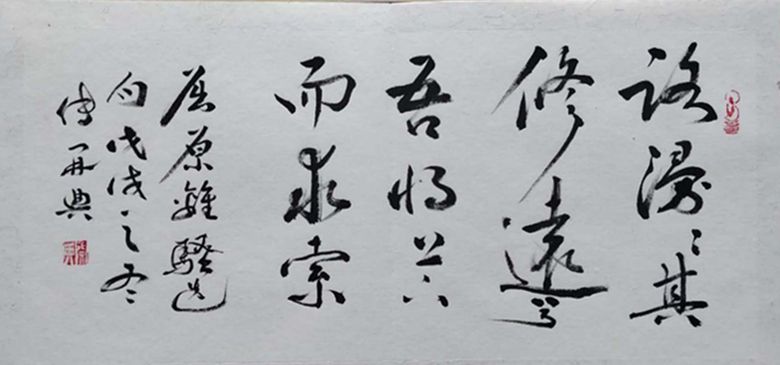 路漫〻其
修遠兮
吾将上下
而求索
屈原離騷选
句戊戌之冬
傅典